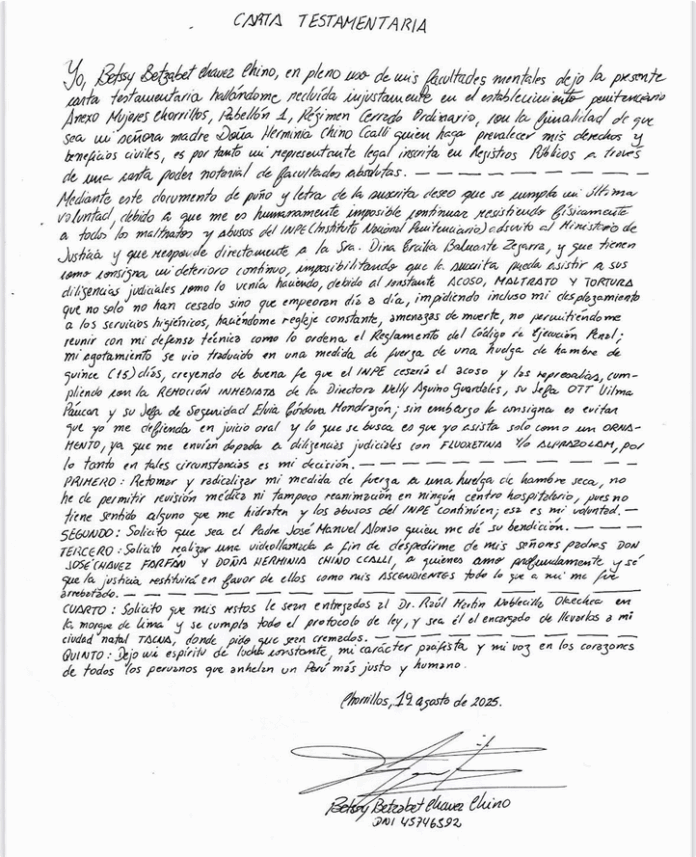 CARTA TESTAMENTARIA
Yo, Betssy Betzabet Chavez Chino, en pleno uso de mis facultades mentales dejo la presente
carta testamentaria hallándome recluida injustamente en el establecimiento penitenciario
Anexo Mujeres Chorrillos, Pabellón 1, Régimen Cerrado Ordinario, con la finalidad de que
sea mi señora madre Doña Herminia Chino Ccalli quien haga prevalecer mis derechos y
beneficios civiles, es por tanto mi representante legal inscrita en Registros Públicos a través
de una carta poder notarial de facultades absolutas. — — — — — — — — — — —
Mediante este documento de puño y letra de la suscrita deseo que se cumpla mi última
voluntad, debido a que me es humanamente imposible continuar resistiendo físicamente
a todos los maltratos y abusos del INPE (Instituto Nacional Penitenciario) adscrito al Ministerio de
Justicia y que responde directamente a la Sra. Dina Ercilia Boluarte Zegarra, y que tienen
como consigna mi deterioro continuo, imposibilitando que la suscrita pueda asistir a sus
diligencias judiciales como lo venía haciendo, debido al constante ACOSO, MALTRATO Y TORTURA
que no solo no han cesado sino que empeoran día a día, impidiendo incluso mi desplazamiento
a los servicios higiénicos, haciéndome reglaje constante, amenazas de muerte, no permitiéndome
reunir con mi defensa técnica como lo ordena el Reglamento del Código de Ejecución Penal;
mi agotamiento se vio traducido en una medida de fuerza de una huelga de hambre de
quince (15) días, creyendo de buena fe que el INPE cesaría el acoso y las represalias, cum-
pliendo con la REMOCIÓN INMEDIATA de la Directora Nelly Aquino Guardales, su Jefa OTT Vilma
Páucar y su Jefa de Seguridad Elvia Córdova Mondragón; sin embargo la consigna es evitar
que yo me defienda en juicio oral y lo que se busca es que yo asista solo como un ORNA-
MENTO, ya que me envían dopada a diligencias judiciales con FLUOXETINA Y/o ALPRAZOLAM, por
lo tanto en tales circunstancias es mi decisión. — — — — — — — — — — —
PRIMERO: Retomar y radicalizar mi medida de fuerza a una huelga de hambre seca, no
he de permitir revisión médica ni tampoco reanimación en ningún centro hospitalario, pues no
tiene sentido alguno que me hidraten y los abusos del INPE continúen; esa es mi voluntad. —
SEGUNDO: Solicito que sea el Padre José Manuel Alonso quien me dé su bendición. — — — —
TERCERO: Solicito realizar una videollamada a fin de despedirme de mis señores padres DON
JOSÉ CHÁVEZ FARFÁN Y DOÑA HERMINIA CHINO CCALLI, a quienes amo profundamente y sé
que la justicia restituirá en favor de ellos como mis ASCENDIENTES todo lo que a mí me fue
arrebatado. — — — — — — — — — — — — — —
CUARTO: Solicito que mis restos le sean entregados al Dr. Raúl Martin Noblecilla Olaechea en
la morgue de lima y se cumpla todo el protocolo de ley, y sea él el encargado de llevarlos a mi
ciudad natal TACNA, donde pido que sean cremados. — — — — — — — — — —
QUINTO: Dejo mi espíritu de lucha constante, mi carácter pacifista y mi voz en los corazones
de todos los peruanos que anhelan un Perú más justo y humano.
Chorrillos, 19 agosto de 2025.
Betssy Betzabet Chavez Chino
DNI 45746592